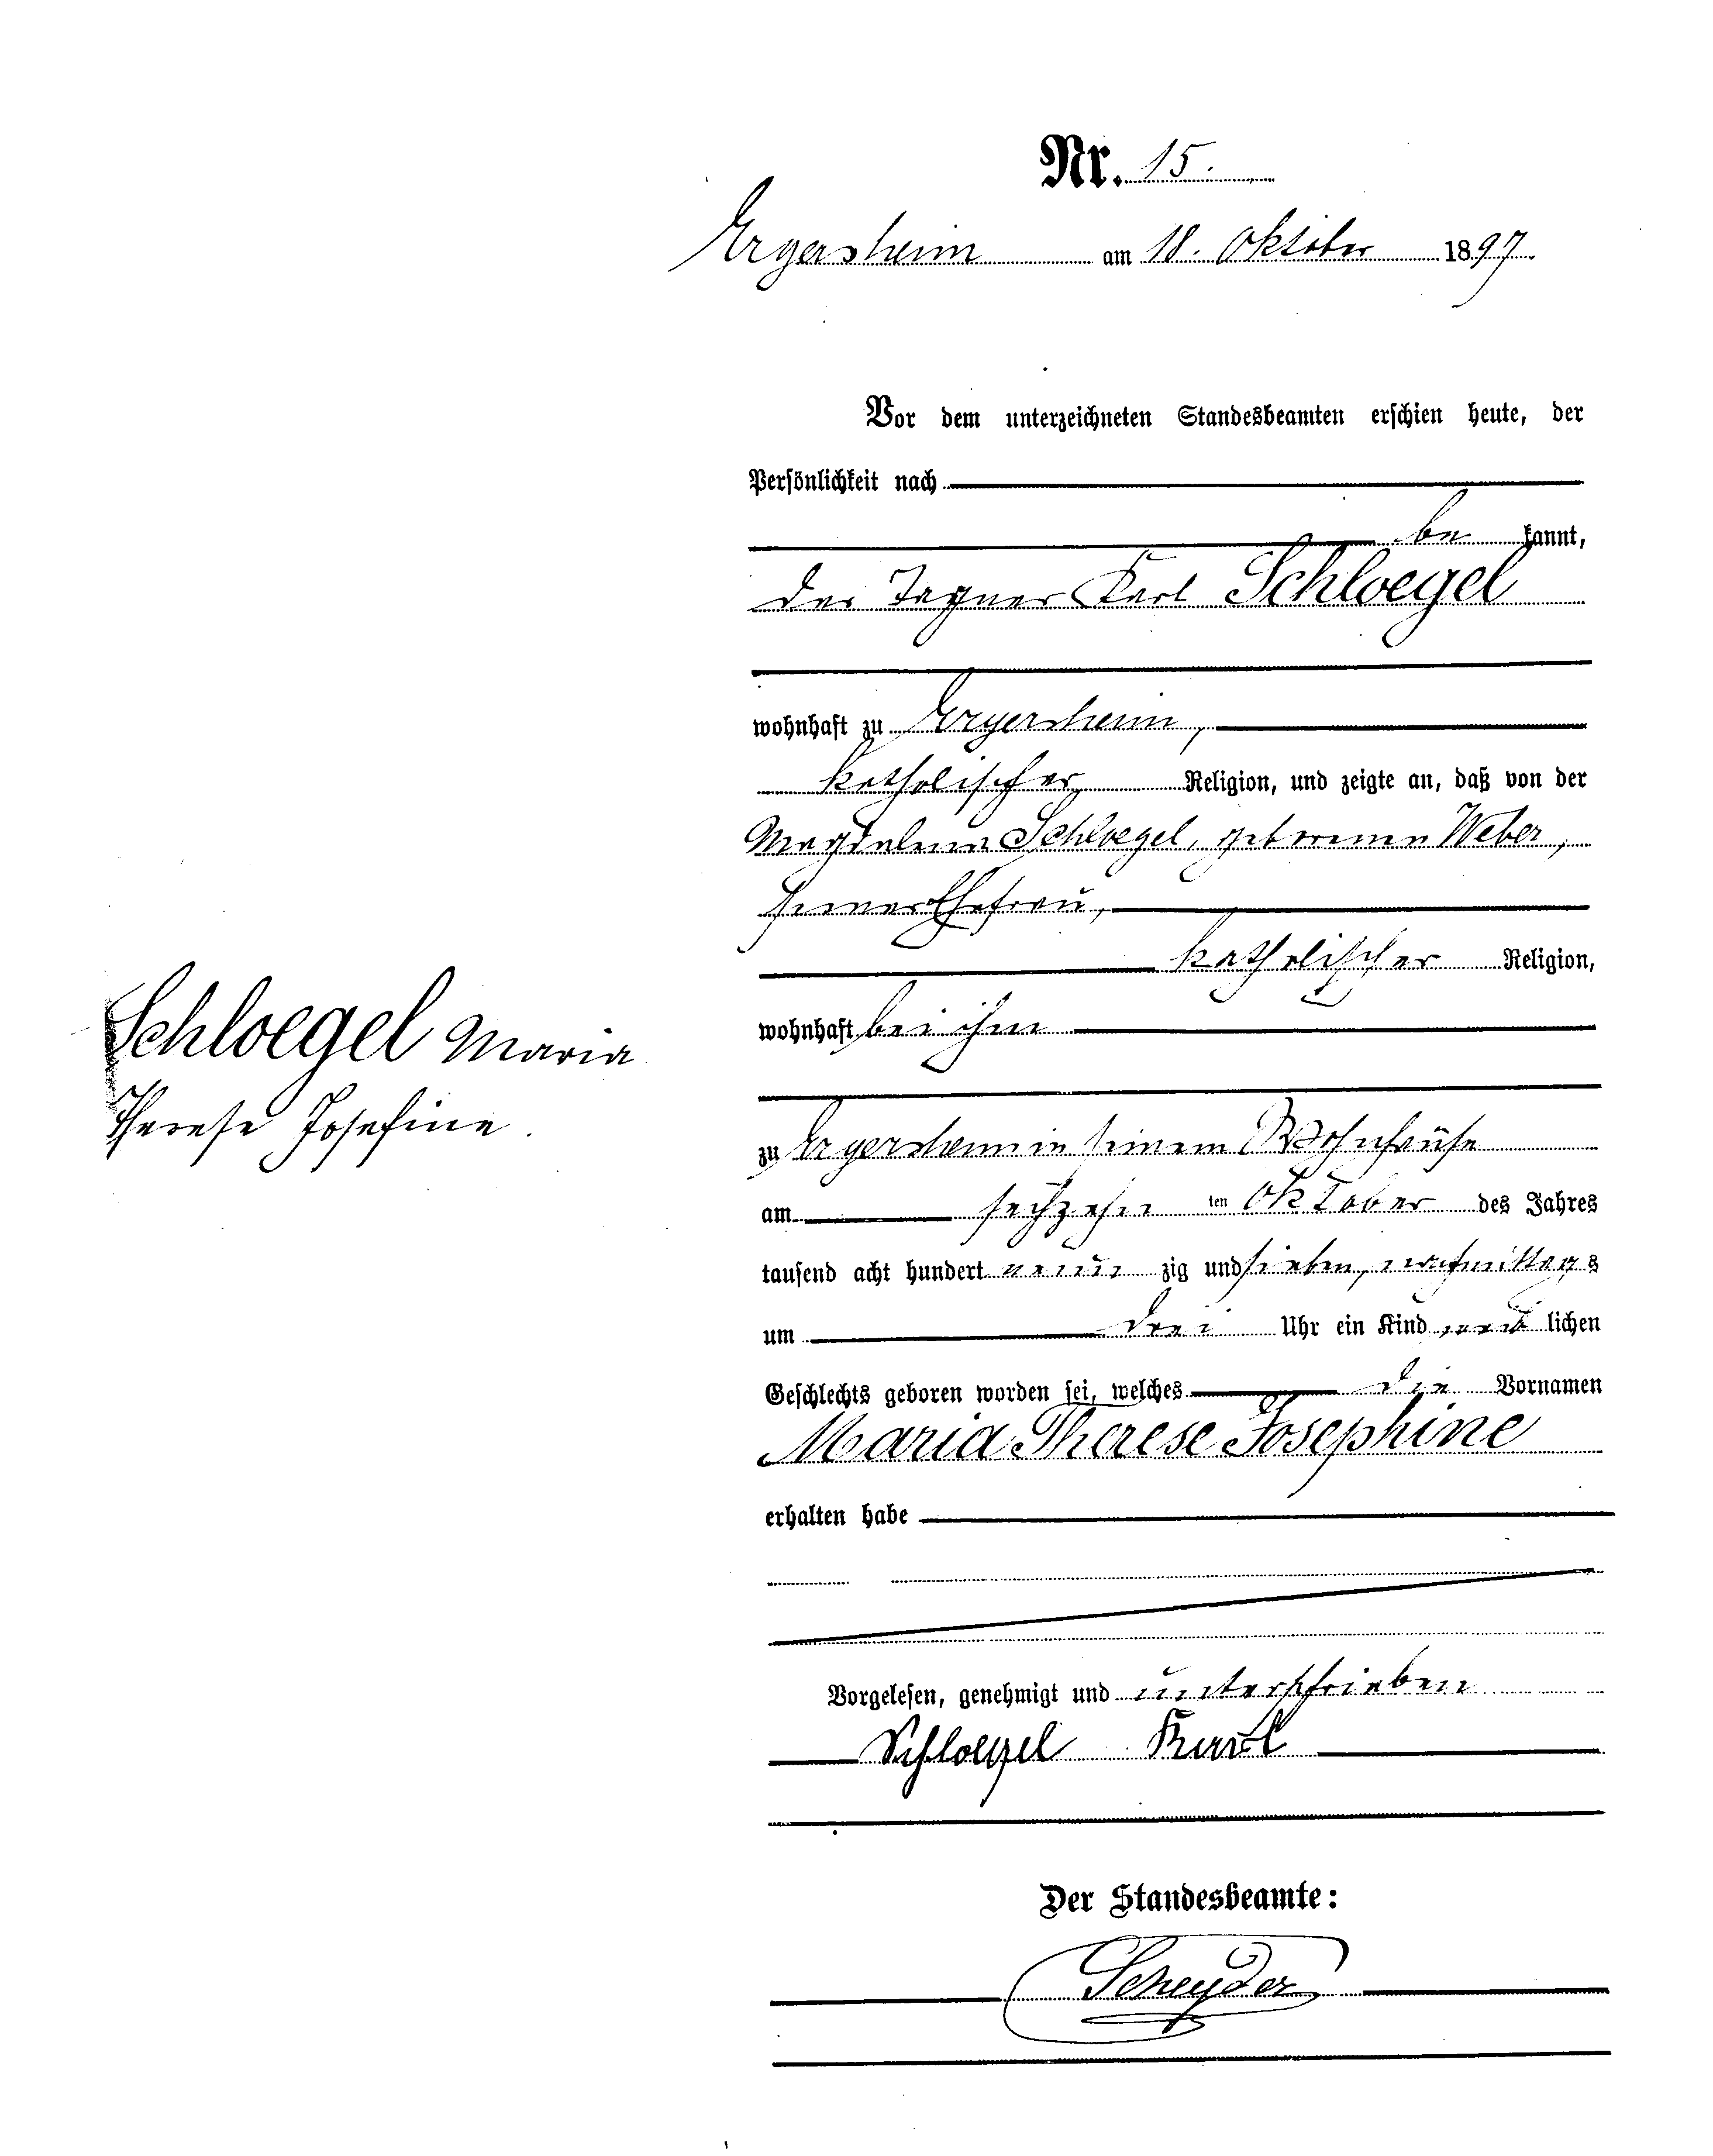 Nr. 15.
Ergersheim am 18. Oktober 1897.
Vor dem unterzeichneten Standesbeamten erschien heute, der
Persönlichkeit nach
be kannt,
der Tagner Karl Schloegel
wohnhaft zu Ergersheim,
katholischer Religion, und zeigte an, daß von der
Magdalena Schloegel, geborenen Weber,
seiner Ehefrau,
katholischer Religion,
wohnhaft bei ihm
Schloegel Maria
Therese Josefine.
zu Ergersheim in seinem Wohnhause
am sechzehn ten Oktober des Jahres
tausend acht hundert neun zig und sieben, nachmittags
um drei Uhr ein Kind weib lichen
Geschlechts geboren worden sei, welches die Vornamen
Maria Therese Josephine
erhalten habe
Vorgelesen, genehmigt und unterschrieben
Schloegel Karl
Der Standesbeamte:
Scheyder